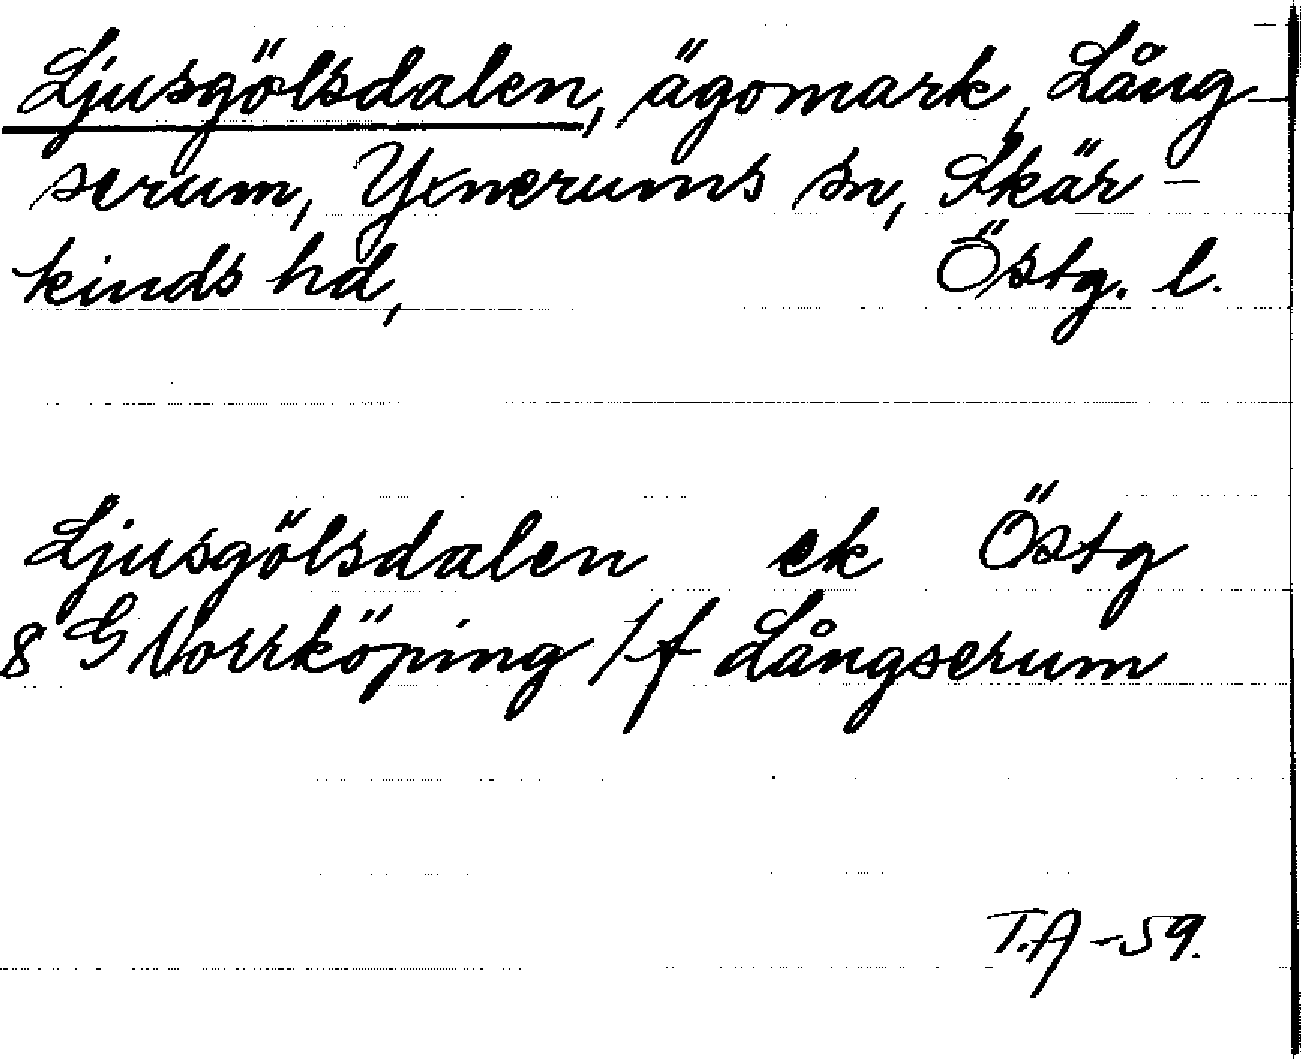 Ljusgölsdalen, ägomark, Lång-
serum, Yxnerums sn, Skär-
kinds hd, Östg. l.
Ljusgölsdalen ek Östg
8 G Norrköping /f Långserum
T.A -59.